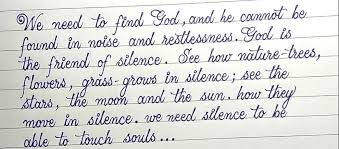 We need to find God, and he cannot be
found in noise and restlessness. God is
the friend of silence. See how nature-trees,
flowers, grass-grows in silence; see the
stars, the moon and the sun. how they
move in silence. we need silence to be
able to touch souls...